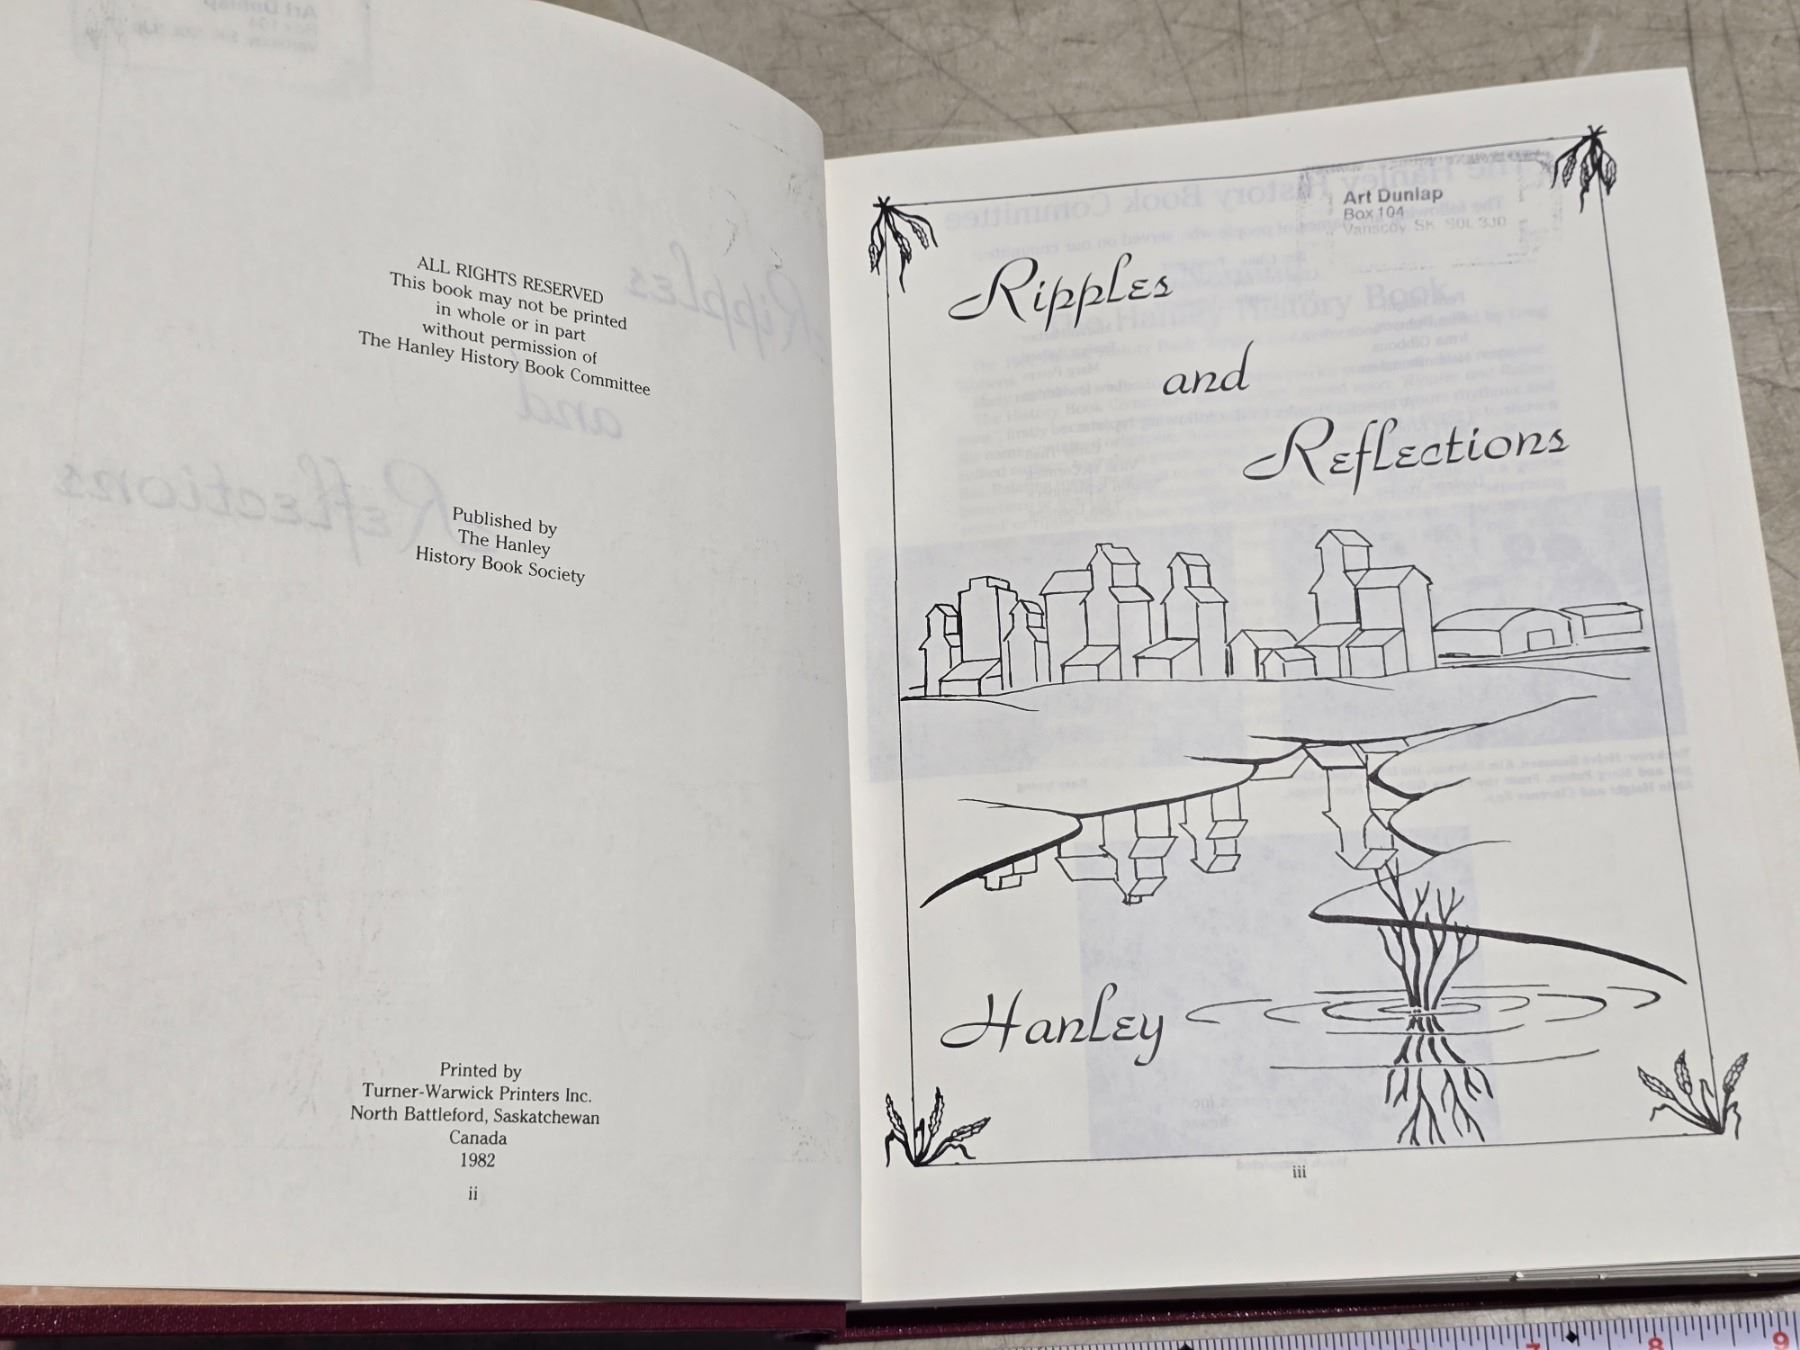 ALL RIGHTS RESERVED
This book may not be printed
in whole or in part
without permission of
The Hanley History Book Committee
Published by
The Hanley
History Book Society
Printed by
Turner-Warwick Printers Inc.
North Battleford, Saskatchewan
Canada
1982
ii
Art Dunlap
Box 104
Vanscoy SK S0L 3J0
Ripples
and
Reflections
Hanley
iii
7
8
9